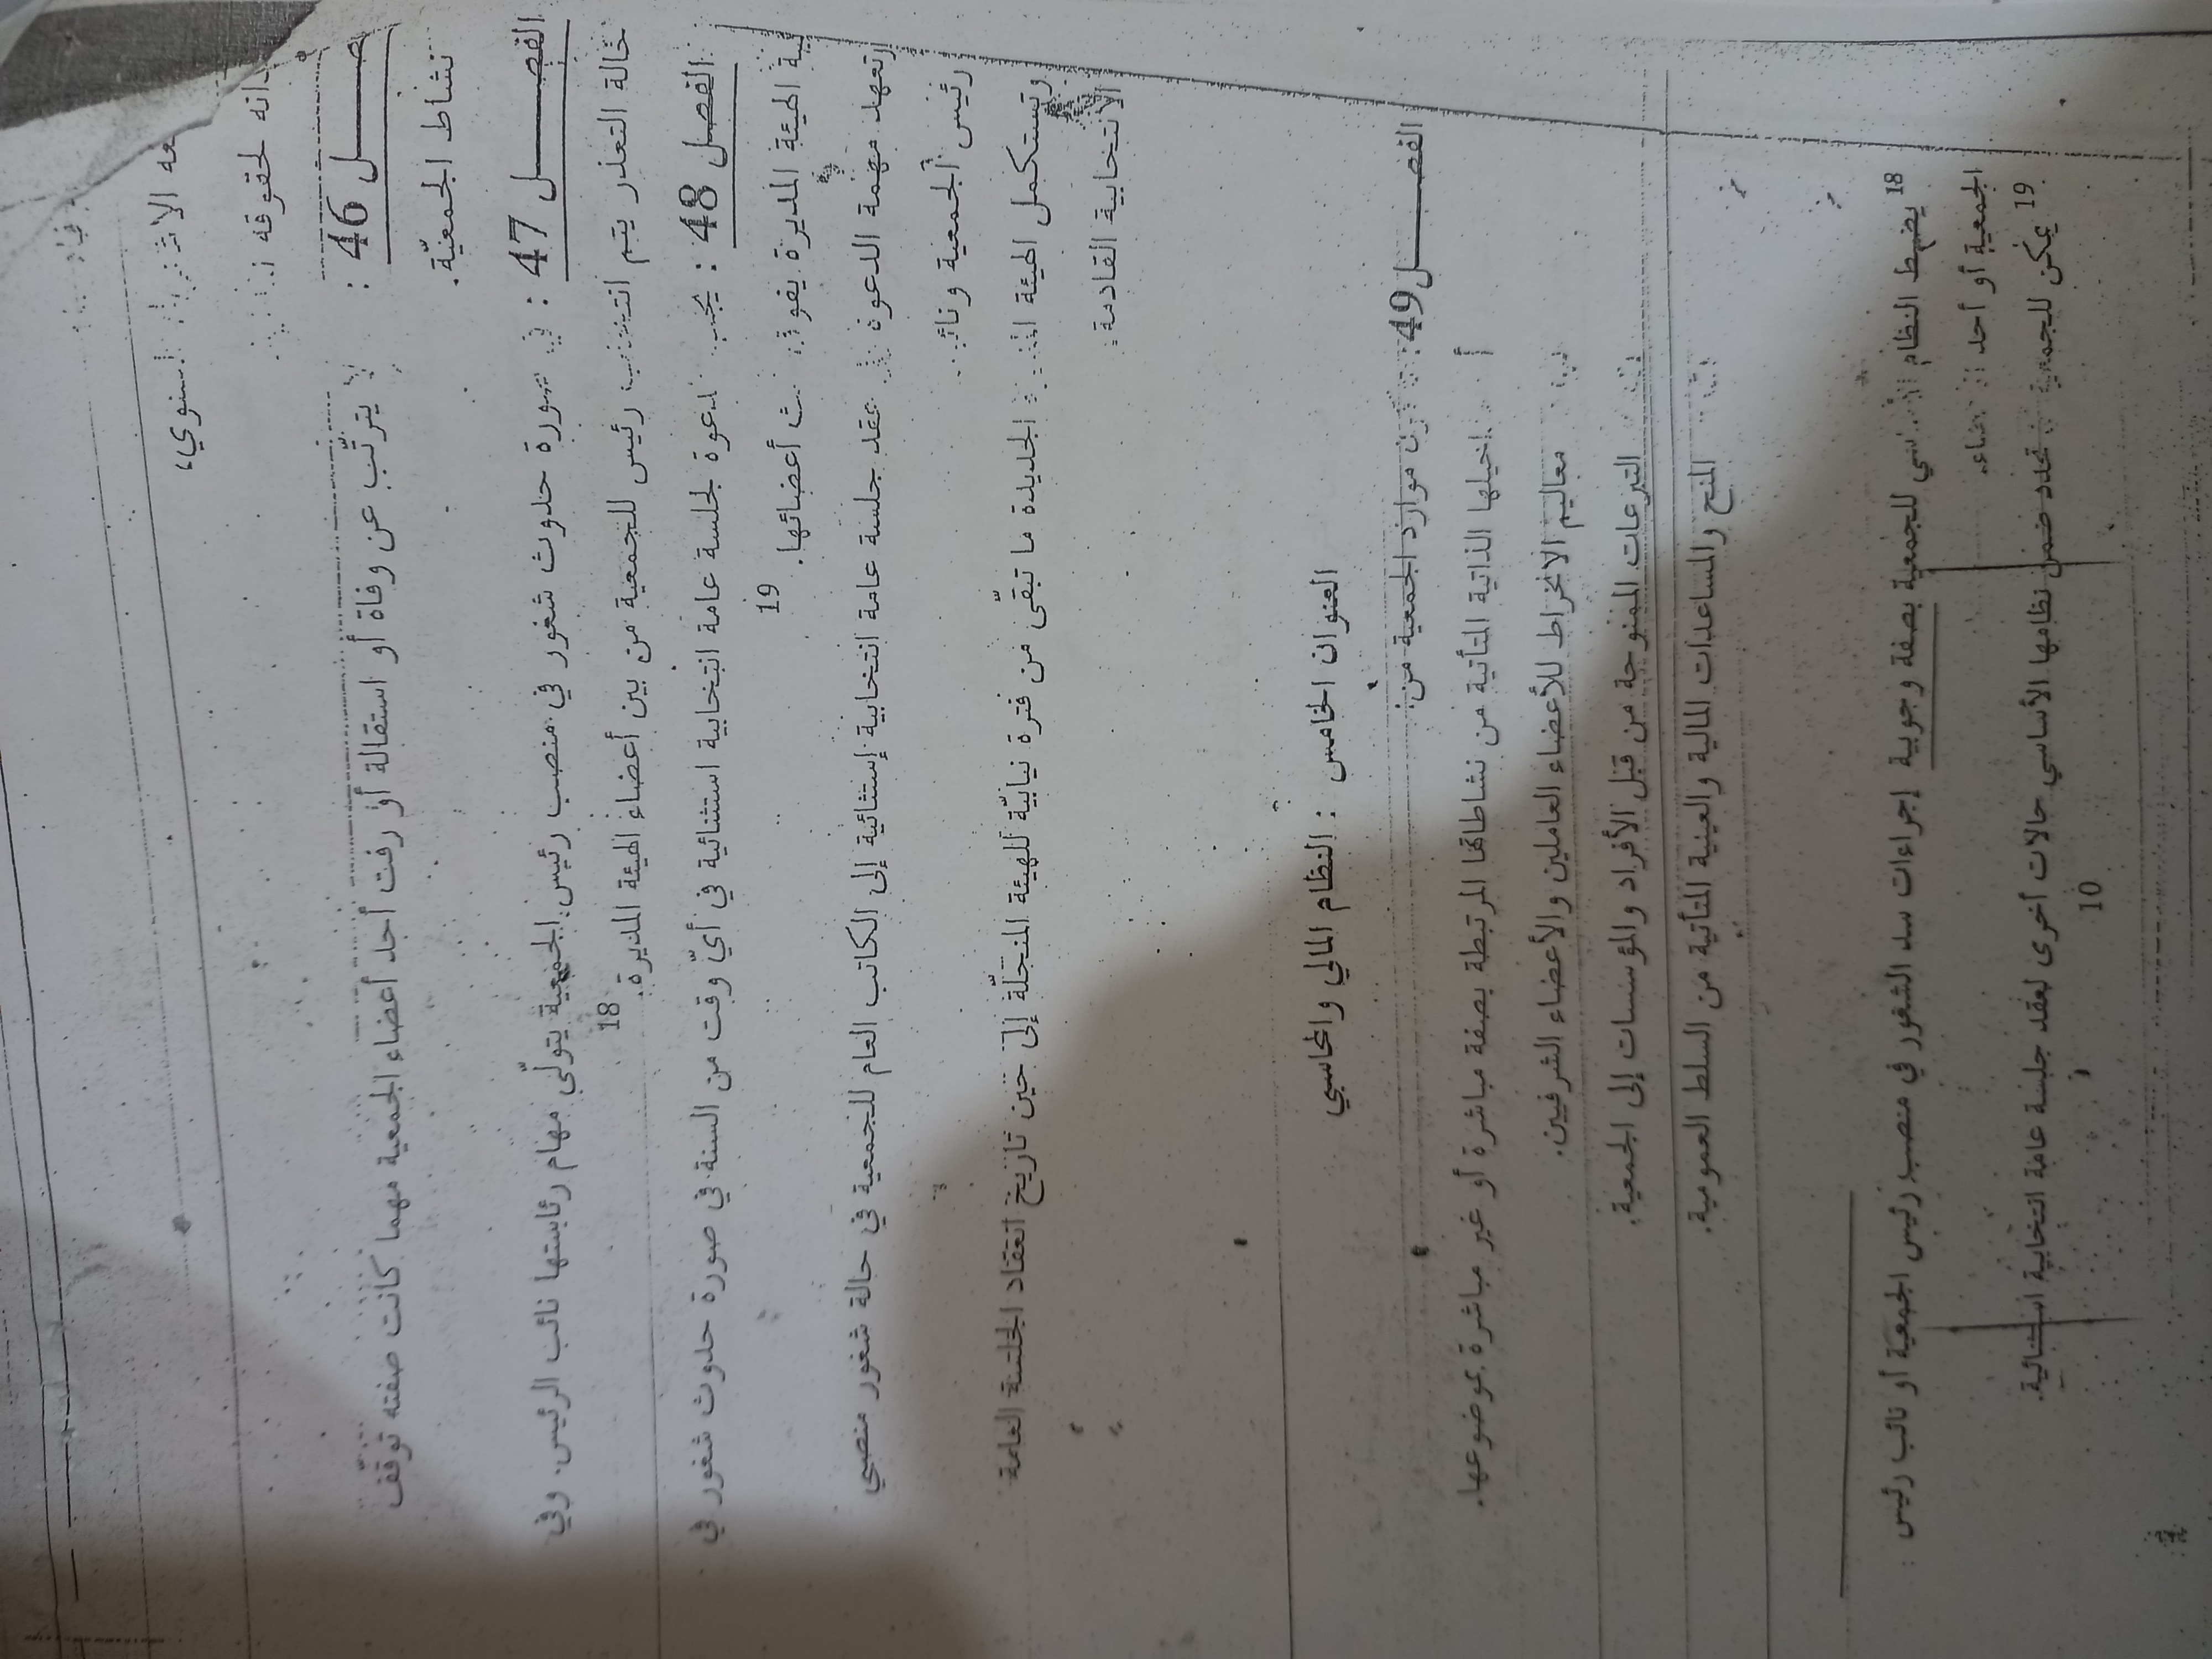 السنوي،
لحقوقه
الفصـــل 46 : لا يترتّب عن وفاة أو استقالة أو رفت أحد أعضاء الجمعية مهما كانت صفته توقّف
نشاط الجمعيّة.
الفصـــل 47 : في صورة حدوث شغور في منصب رئيس الجمعية يتولّى مهام رئاستها نائب الرئيس وفي
حالة التعذر يتم انتخاب رئيس للجمعية من بين أعضاء الهيئة المديرة. 18
الفصل 48 : يجب الدعوة لجلسة عامة انتخابية استثنائية في أيّ وقت من السنة في صورة حدوث شغور في
الهيئة المديرة يفوق ثلث أعضائها. 19
تعهد مهمة الدعوة عقد جلسة عامة انتخابية إستثنائية إلى الكاتب العام للجمعية في حالة شغور منصبي
رئيس الجمعية
وتستكمل الهيئة الجديدة ما تبقّى من فترة نيابيّة للهيئة المنحلّة إلى حين تاريخ انعقاد الجلسة العامة
الانتخابية القادمة
العنوان الخامس : النظام المالي والمحاسبي
الفصـــل 49: موارد الجمعية من:
مداخيلها الذاتية المتأتية من نشاطاتها المرتبطة بصفة مباشرة أو غير مباشرة بموضوعها.
معاليم الانخراط للأعضاء العاملين والأعضاء الشرفيين.
التبرعات الممنوحة من قبل الأفراد والمؤسسات إلى الجمعية.
المنح والمساعدات المالية والعينية المتأتية من السلط العمومية.
18 يضبط النظام الأساسي للجمعية بصفة وجوبية إجراءات سد الشغور في منصب رئيس الجمعية أو نائب رئيس
الجمعية أو أحد الأعضاء.
19 يمكن للجمعية تحدد ضمن نظامها الأساسي حالات أخرى لعقد جلسة عامة انتخابية استثنائية.
10